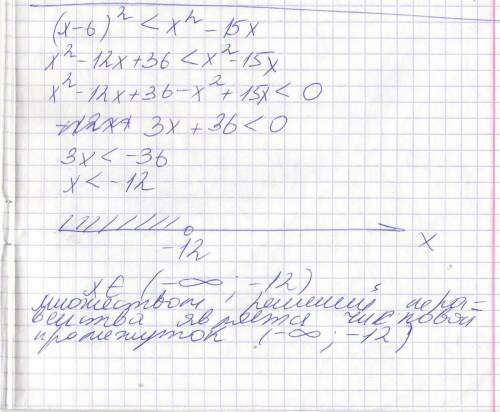 (x-6)² < x² - 15x
x² - 12x + 36 < x² - 15x
x² - 12x + 36 - x² + 15x < 0
3x + 36 < 0
3x < -36
x < -12
-12 x
x ∈ (-∞; -12)
множеством решений нера-
венства является числовой
промежуток (-∞; -12)